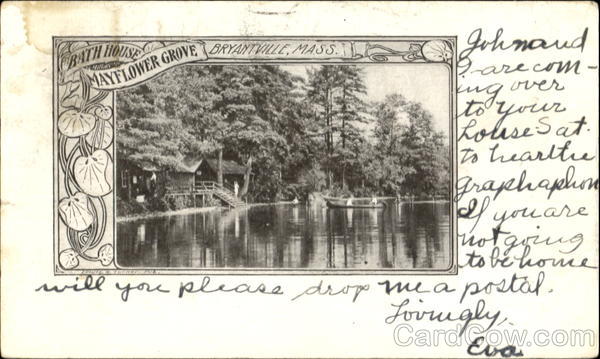 BATH HOUSE
MAYFLOWER GROVE
BRYANTVILLE, MASS.
John and
I are com-
ing over
to your
house Sat.
to hear the
graphaphon
If you are
not going
to be home
will you please drop me a postal.
Lovingly,
Eva
CardCow.com